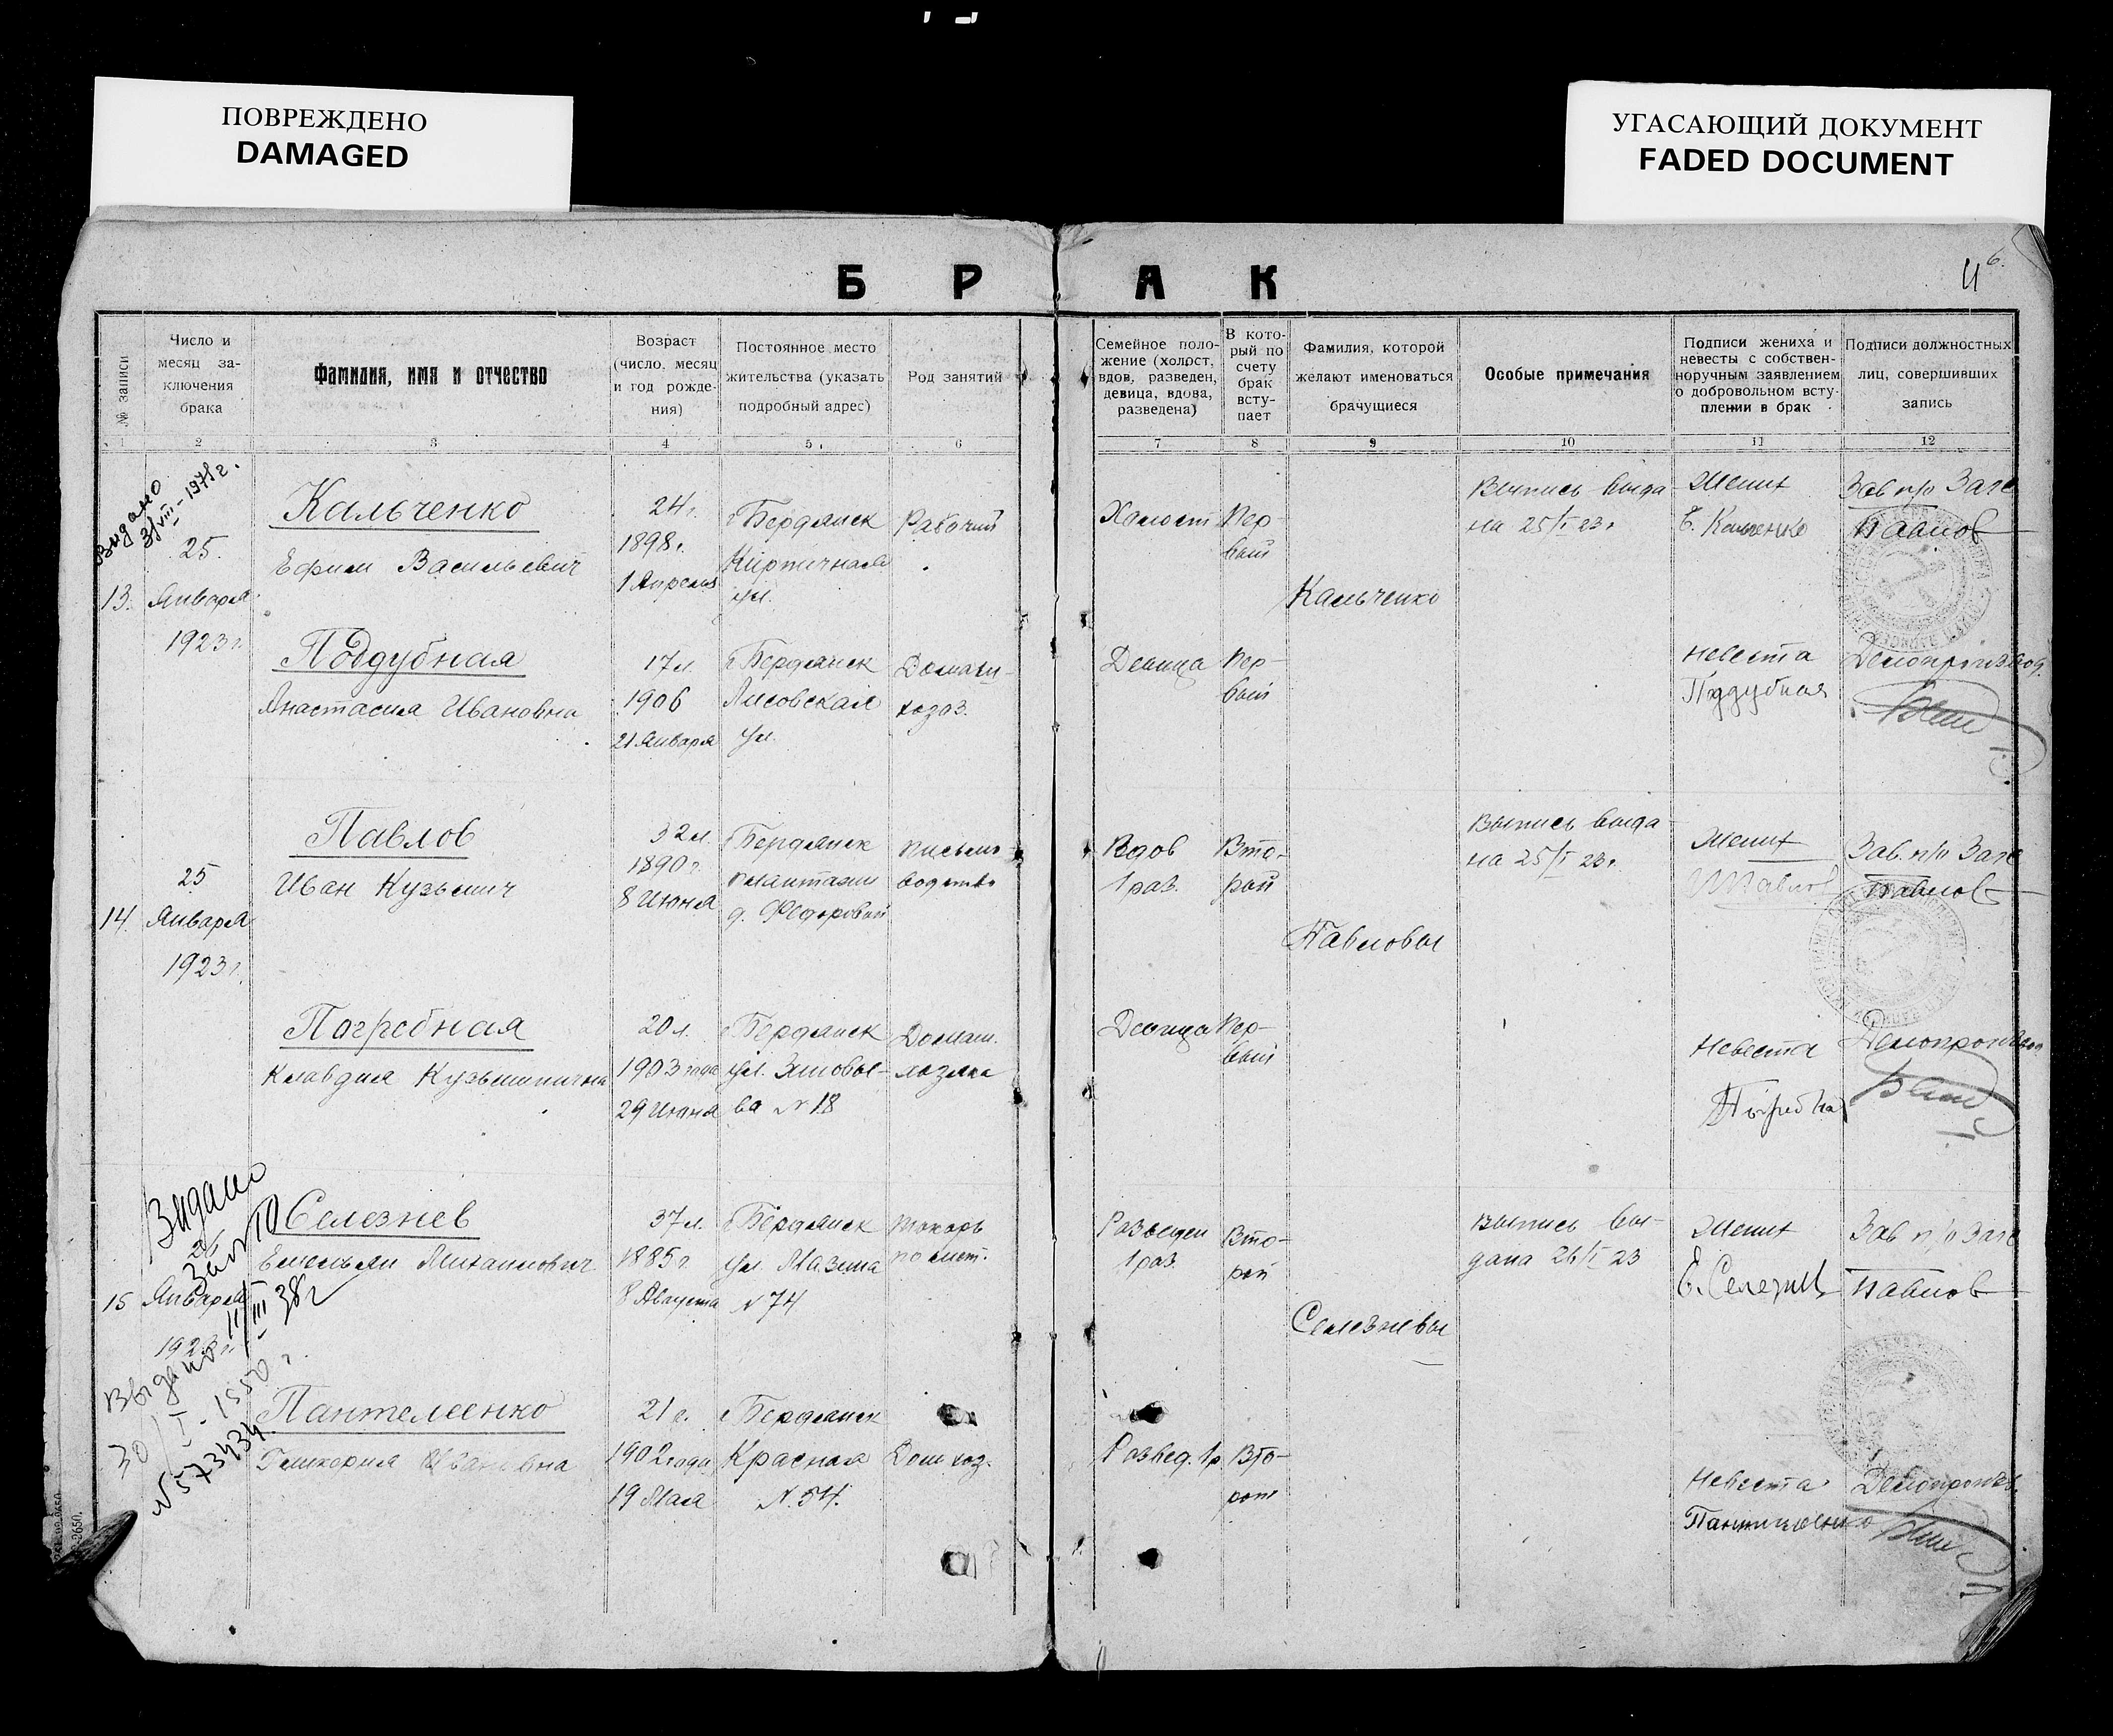 ПОВРЕЖДЕНО
DAMAGED
УГАСАЮЩИЙ ДОКУМЕНТ
FADED DOCUMENT
Б Р А К
6.
№ записи
Число и
месяц за-
ключения
брака
Фамилия, имя и отчество
Возраст
(число, месяц
и год рожде-
ния)
Постоянное место
жительства (указать
подробный адрес)
Род занятий
Семейное поло-
жение (холост,
вдов, разведен,
девица, вдова,
разведена)
В кото-
рый по
счету
брак
всту-
пает
Фамилия, которой
желают именоваться
брачущиеся
Особые примечания
Подписи жениха и
невесты с собствен-
норучным заявлением
о добровольном всту-
плении в брак
Подписи должностных
лиц, совершивших
запись
1 2 3 4 5 6 7 8 9 10 11 12
Видано
31/VIII-1971г.
13.
25.
Января
1923г.
Кальченко
Ефим Васильевич
24г.
1898г.
1 Апреля
г Бердянск
Кирпичная
ул.
Рабочий
Холост
Пер-
вый
Кальченко
Выпись выда-
на 25/I 23г
Жених
Е. Кальченко
Зав п/о Загс
Павлов
Поддубная
Анастасия Ивановна
17л.
1906
21 Января
г Бердянск
Лисовская
ул.
Домашн-
хозяз.
Девица
Пер-
вый
Невеста
Поддубная
Делопроизвод.
14.
25
Января
1923г.
Павлов
Иван Кузьмич
32л.
1890г.
8 Июня
г Бердянск
плантации
д. Федоровой
письмо-
водитель
Вдов
1 раз.
Вто-
рой
Павловы
Выпись выда-
на 25/I 23г.
Жених
И Павлов
Зав. п/о Загс
Павлов
Погребная
Клавдия Кузьминична
20л.
1903 года
29 Июня
г Бердянск
ул.
ва № 18
Домаш.
хозяка
Девица
Пер-
вый
Невеста
Делопроизвод
Видано
Залг 10
11/III 38г
15
26
Января
1923г.
Видано
30/I-1950г.
№573434.
Селезнев
Емельян Михайлович
37л.
1885г
8 Августа
г Бердянск
ул. Мазина
№ 74
токарь
по мет.
Разведен
1 раз.
Вто-
рой
Селезневы
Выпись вы-
дана 26/I 23
Жених
Е. Селезнев
Зав п/о Загс
Павлов
Пантелеенко
Гликерия Ивановна
21 г.
1902 года
19 Мая
г Бердянск
Красная
№.54.
Дом хоз.
Развед. 1р.
Вто-
рой
Невеста
Пантилеенко
Делопроизв.